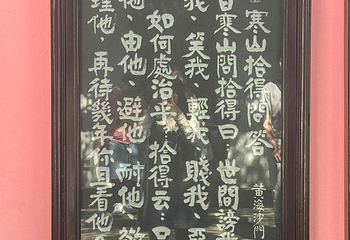 寒山拾得問答
黃海沙門
昔寒山問拾得曰、世間謗
我、笑我、輕我、賤我、惡
如何處治乎、拾得云、只
他、由他、避他、耐他、敬
理他、再待幾年你且看他